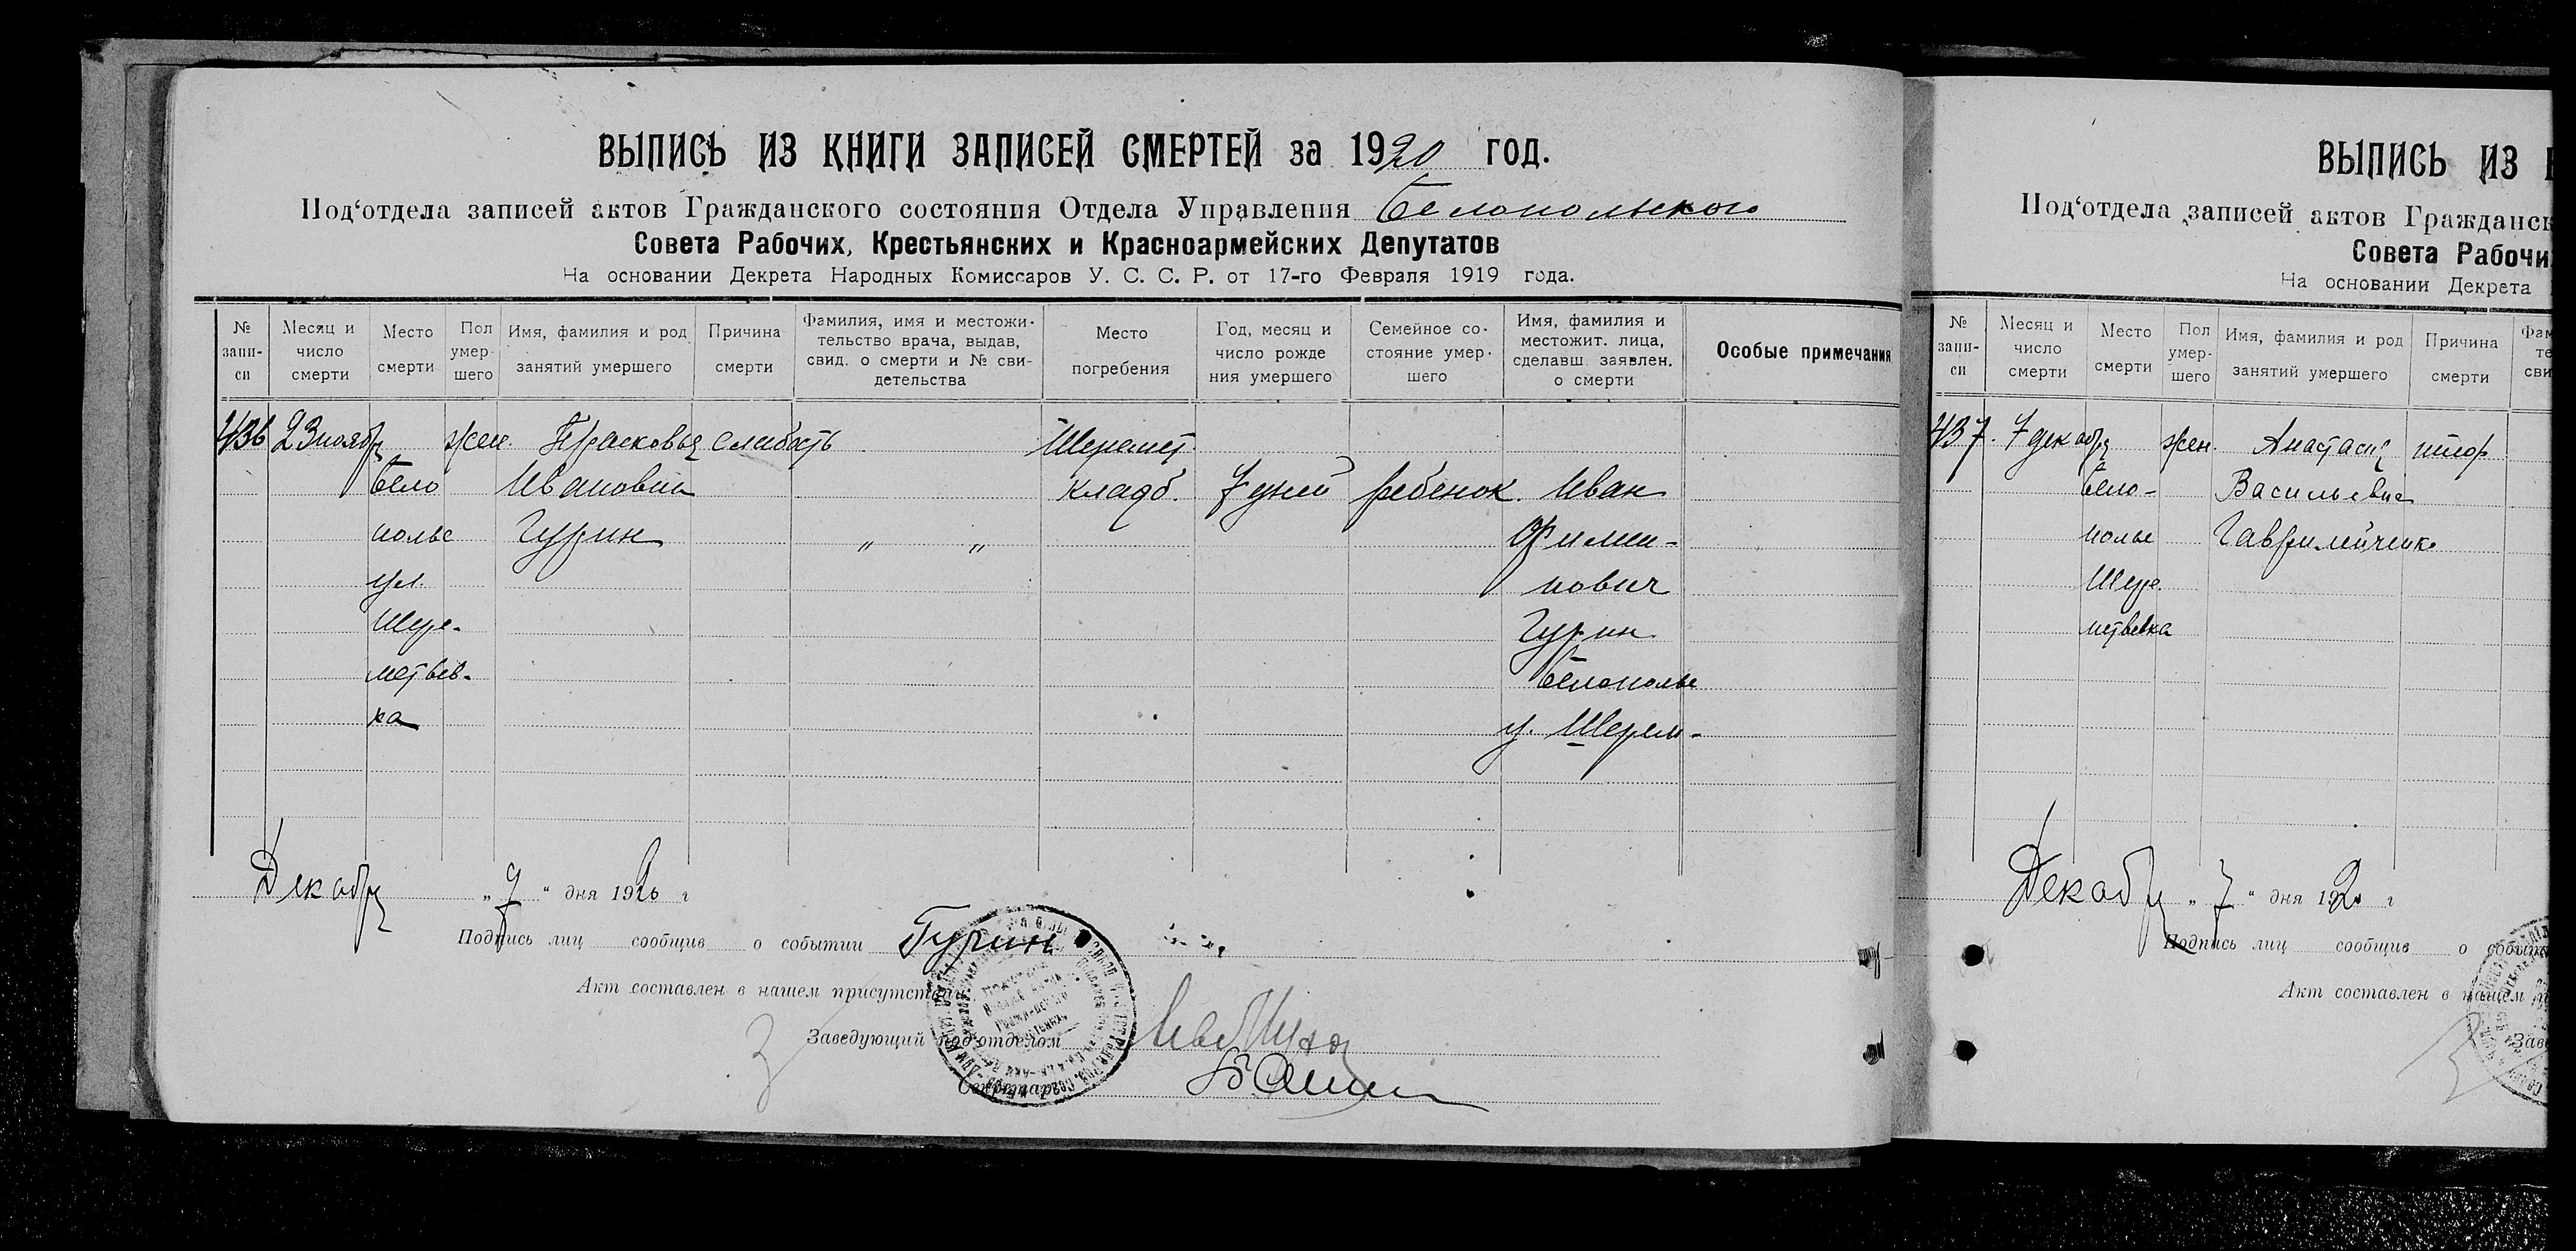 ВЫПИСЬ ИЗ КНИГИ ЗАПИСЕЙ СМЕРТЕЙ за 1920 год.
Под‘отдела записей актов Гражданского состояния Отдела Управления Белопольского
Совета Рабочих, Крестьянских и Красноармейских Депутатов
На основании Декрета Народных Комиссаров У. С. С. Р. от 17-го Февраля 1919 года.
№ запи- си
Месяц и число смерти
Место смерти
Пол умер- шего
Имя, фамилия и род занятий умершего
Причина смерти
Фамилия, имя и местожи- тельство врача, выдав, свид. о смерти и № сви- детельства
Место погребения
Год, месяц и число рожде ния умершего
Семейное со- стояние умер- шего
Имя, фамилия и местожит. лица, сделавш. заявлен. о смерти
Особые примечания
436 23 ноябр жен. Прасковья слабость Шеремет.
Бело Ивановна кладб. 7 дней ребенок. Иван
полье Гурин „ „ Филип-
ул. пович
Шере- Гурин
метьев- Белополье
ка у. Шерем-
Декабр „7“ дня 1920 г
Подпись лиц сообщив о событии Гурин
Акт составлен в нашем присутствии
Заведующий под‘отделом
Секретарь
ВЫПИСЬ ИЗ
Под‘отдела записей актов Гражданск
Совета Рабочи
На основании Декрета
№ запи- си
Месяц и число смерти
Место смерти
Пол умер- шего
Имя, фамилия и род занятий умершего
Причина смерти
Фам
те
сви
437. 7 декабр жен. Анастасия
Бело- Васильевна
полье Гаврилейченко
Шере
метьевка
Декабр „7“ дня 1920 г
Подпись лиц сообщив о событи
Акт составлен в нашем
Зав